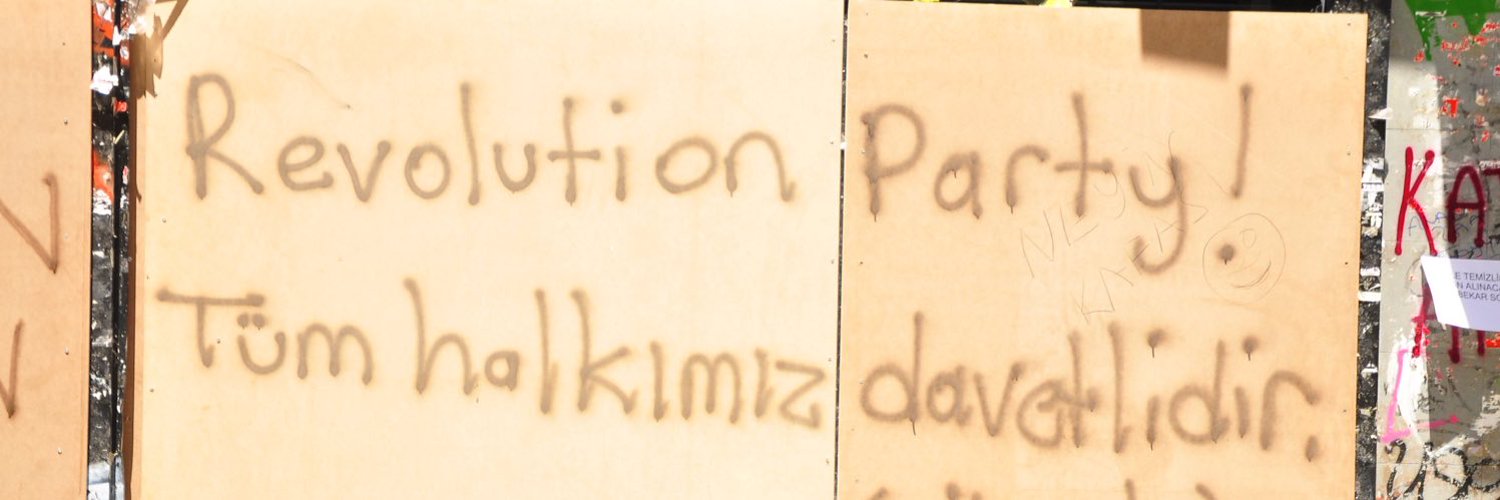 Revolution Party!
Tüm halkımız davetlidir.
KAT
E TEMİZLİ
N ALINACA
BEKAR SO